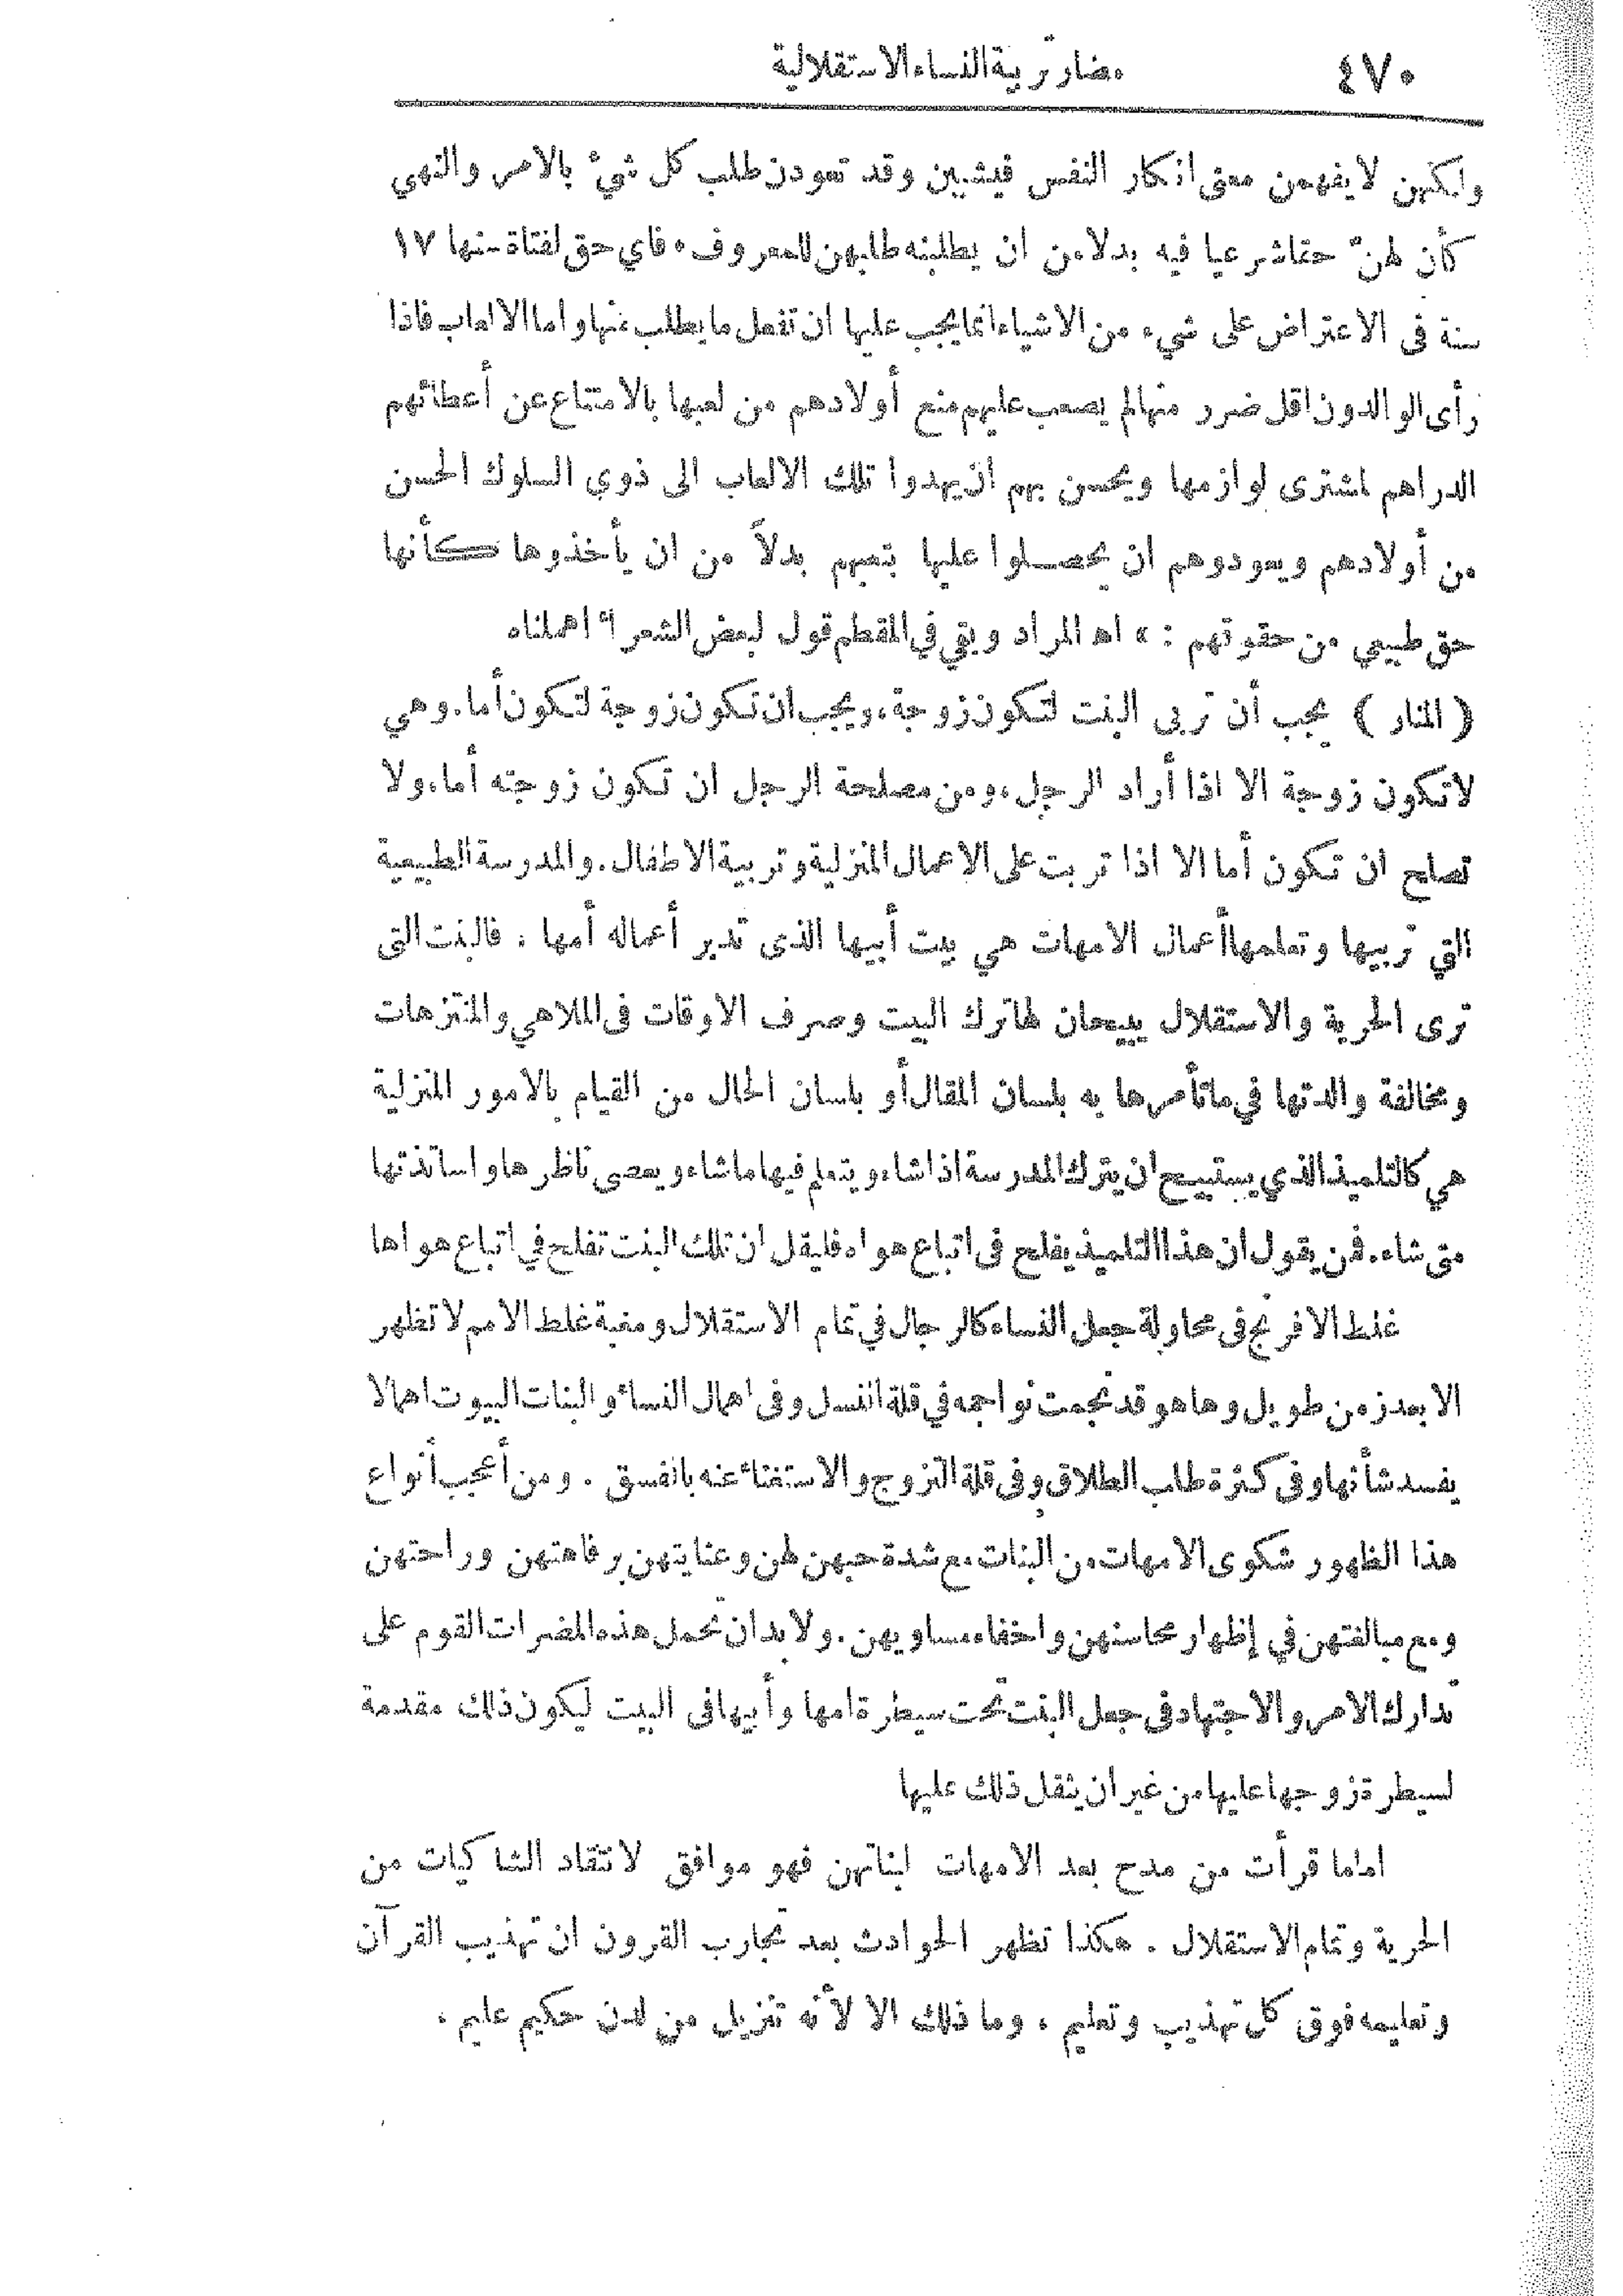 ٤٧٠ مضار تربية النساء الاستقلالية
ولكنهن لا يفهمن معنى انكار النفس فيشبين وقد تعودن طلب كل شيء بالامر والنهي
كأن لهنّ حقا شرعيا فيه بدلا من ان يطلبنه طلبهن للمعروف. فاي حق لفتاة سنها ١٧
سنة في الاعتراض على شيء من الاشياء انما يجب عليها ان تفعل ما يطلب منها واما الالعاب فاذا
رأى الوالدون اقل ضرر منها لم يصعب عليهم منع أولادهم من لعبها بالامتناع عن أعطائهم
الدراهم لمشترى لوازمها ويحسن بهم ان يهدوا تلك الالعاب الى ذوي السلوك الحسن
من أولادهم ويعودوهم ان يحصلوا عليها بتعبهم بدلاً من ان يأخذوها كأنها
حق طبيعي من حقوقهم : » اهـ المراد وبقي في المقطم قول لبعض الشعراء اهملناه
( المنار ) يجب أن تربى البنت لتكون زوجة، ويجب ان تكون زوجة لتكون أما. وهي
لا تكون زوجة الا اذا أراد الرجل، ومن مصلحة الرجل ان تكون زوجته أما، ولا
تصلح ان تكون أما الا اذا تربت على الاعمال المنزلية وتربية الاطفال. والمدرسة الطبيعية
التي تربيها وتعلمها أعمال الامهات هي بيت أبيها الذى تدير أعماله أمها . فالبنت التى
ترى الحرية والاستقلال يبيحان لها ترك البيت وصرف الاوقات فى الملاهي والمنتزهات
ومخالفة والدتها في ما تأمرها به بلسان المقال أو بلسان الحال من القيام بالامور المنزلية
هي كالتلميذ الذي يستبيح ان يترك المدرسة اذا شاء ويتعلم فيها ما شاء ويعصى ناظرها واساتذتها
متى شاء. فمن يقول ان هذا التلميذ يفلح فى اتباع هواه فليقل ان تلك البنت تفلح في اتباع هواها
غلط الافرنج فى محاولة جعل النساء كالرجال في تمام الاستقلال ومغبة غلط الامم لا تظهر
الا بعد زمن طويل وها هو قد نجمت نواجمه في قلة النسل وفى اهمال النساء والبنات البيوت اهمالا
يفسد شأنها وفى كثرة طلب الطلاق وفى قلة التزوج والاستغناء عنه بالفسق . ومن أعجب أنواع
هذا الظهور شكوى الامهات من البنات مع شدة حبهن لهن وعنايتهن برفاهتهن وراحتهن
ومع مبالغتهن في إظهار محاسنهن واخفاء مساويهن. ولا بد ان تحمل هذه المضرات القوم على
تدارك الامر والاجتهاد فى جعل البنت تحت سيطرة امها وأبيها فى البيت ليكون ذلك مقدمة
لسيطرة زوجها عليها من غير ان يثقل ذلك عليها
اما ما قرأت من مدح بعد الامهات لبناتهن فهو موافق لانتقاد الشاكيات من
الحرية وتمام الاستقلال . هكذا تظهر الحوادث بعد تجارب القرون ان تهذيب القرآن
وتعليمه فوق كل تهذيب وتعليم ، وما ذلك الا لأنه تنزيل من لدن حكيم عليم ،